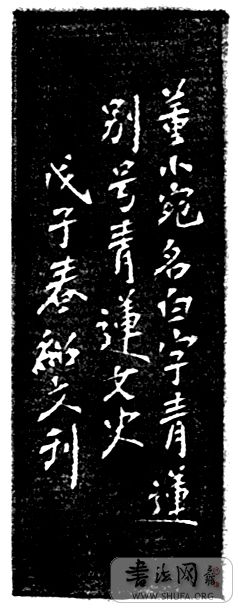 董小宛名白字青蓮
别号青蓮女史
戊子春刊
书法网
WWW.SHUFA.ORG